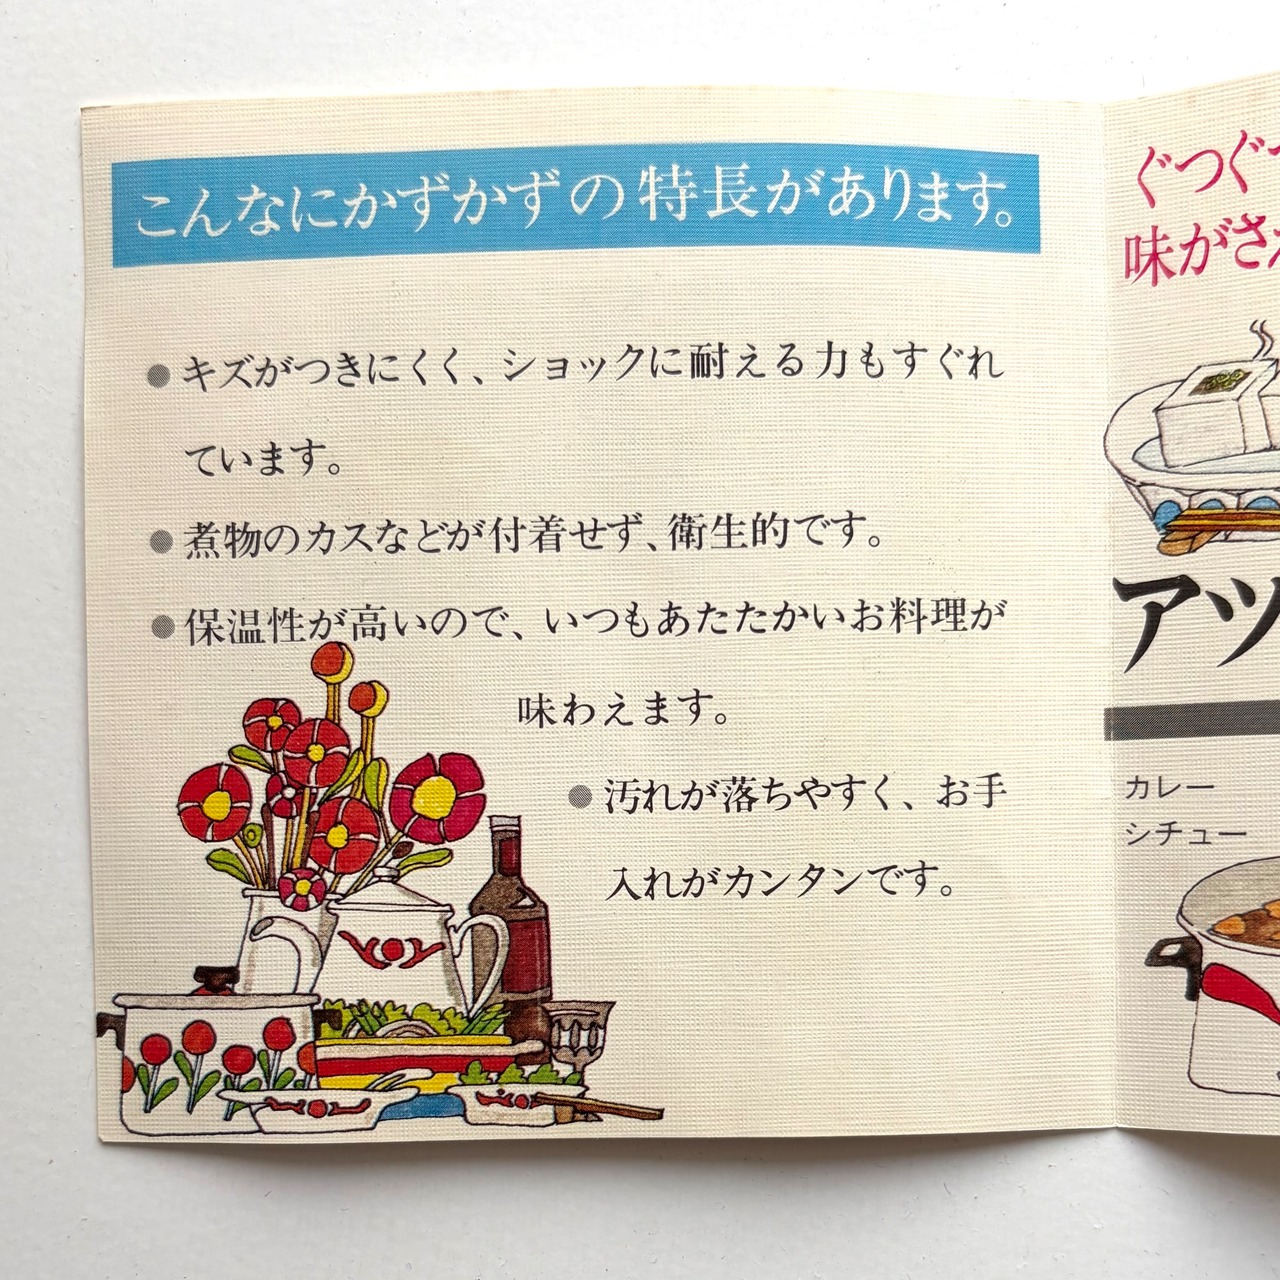 こんなにかずかずの特長があります。
●キズがつきにくく、ショックに耐える力もすぐれ
ています。
●煮物のカスなどが付着せず、衛生的です。
●保温性が高いので、いつもあたたかいお料理が
味わえます。
●汚れが落ちやすく、お手
入れがカンタンです。
ぐつぐ
味がさ
アツ
カレー
シチュー